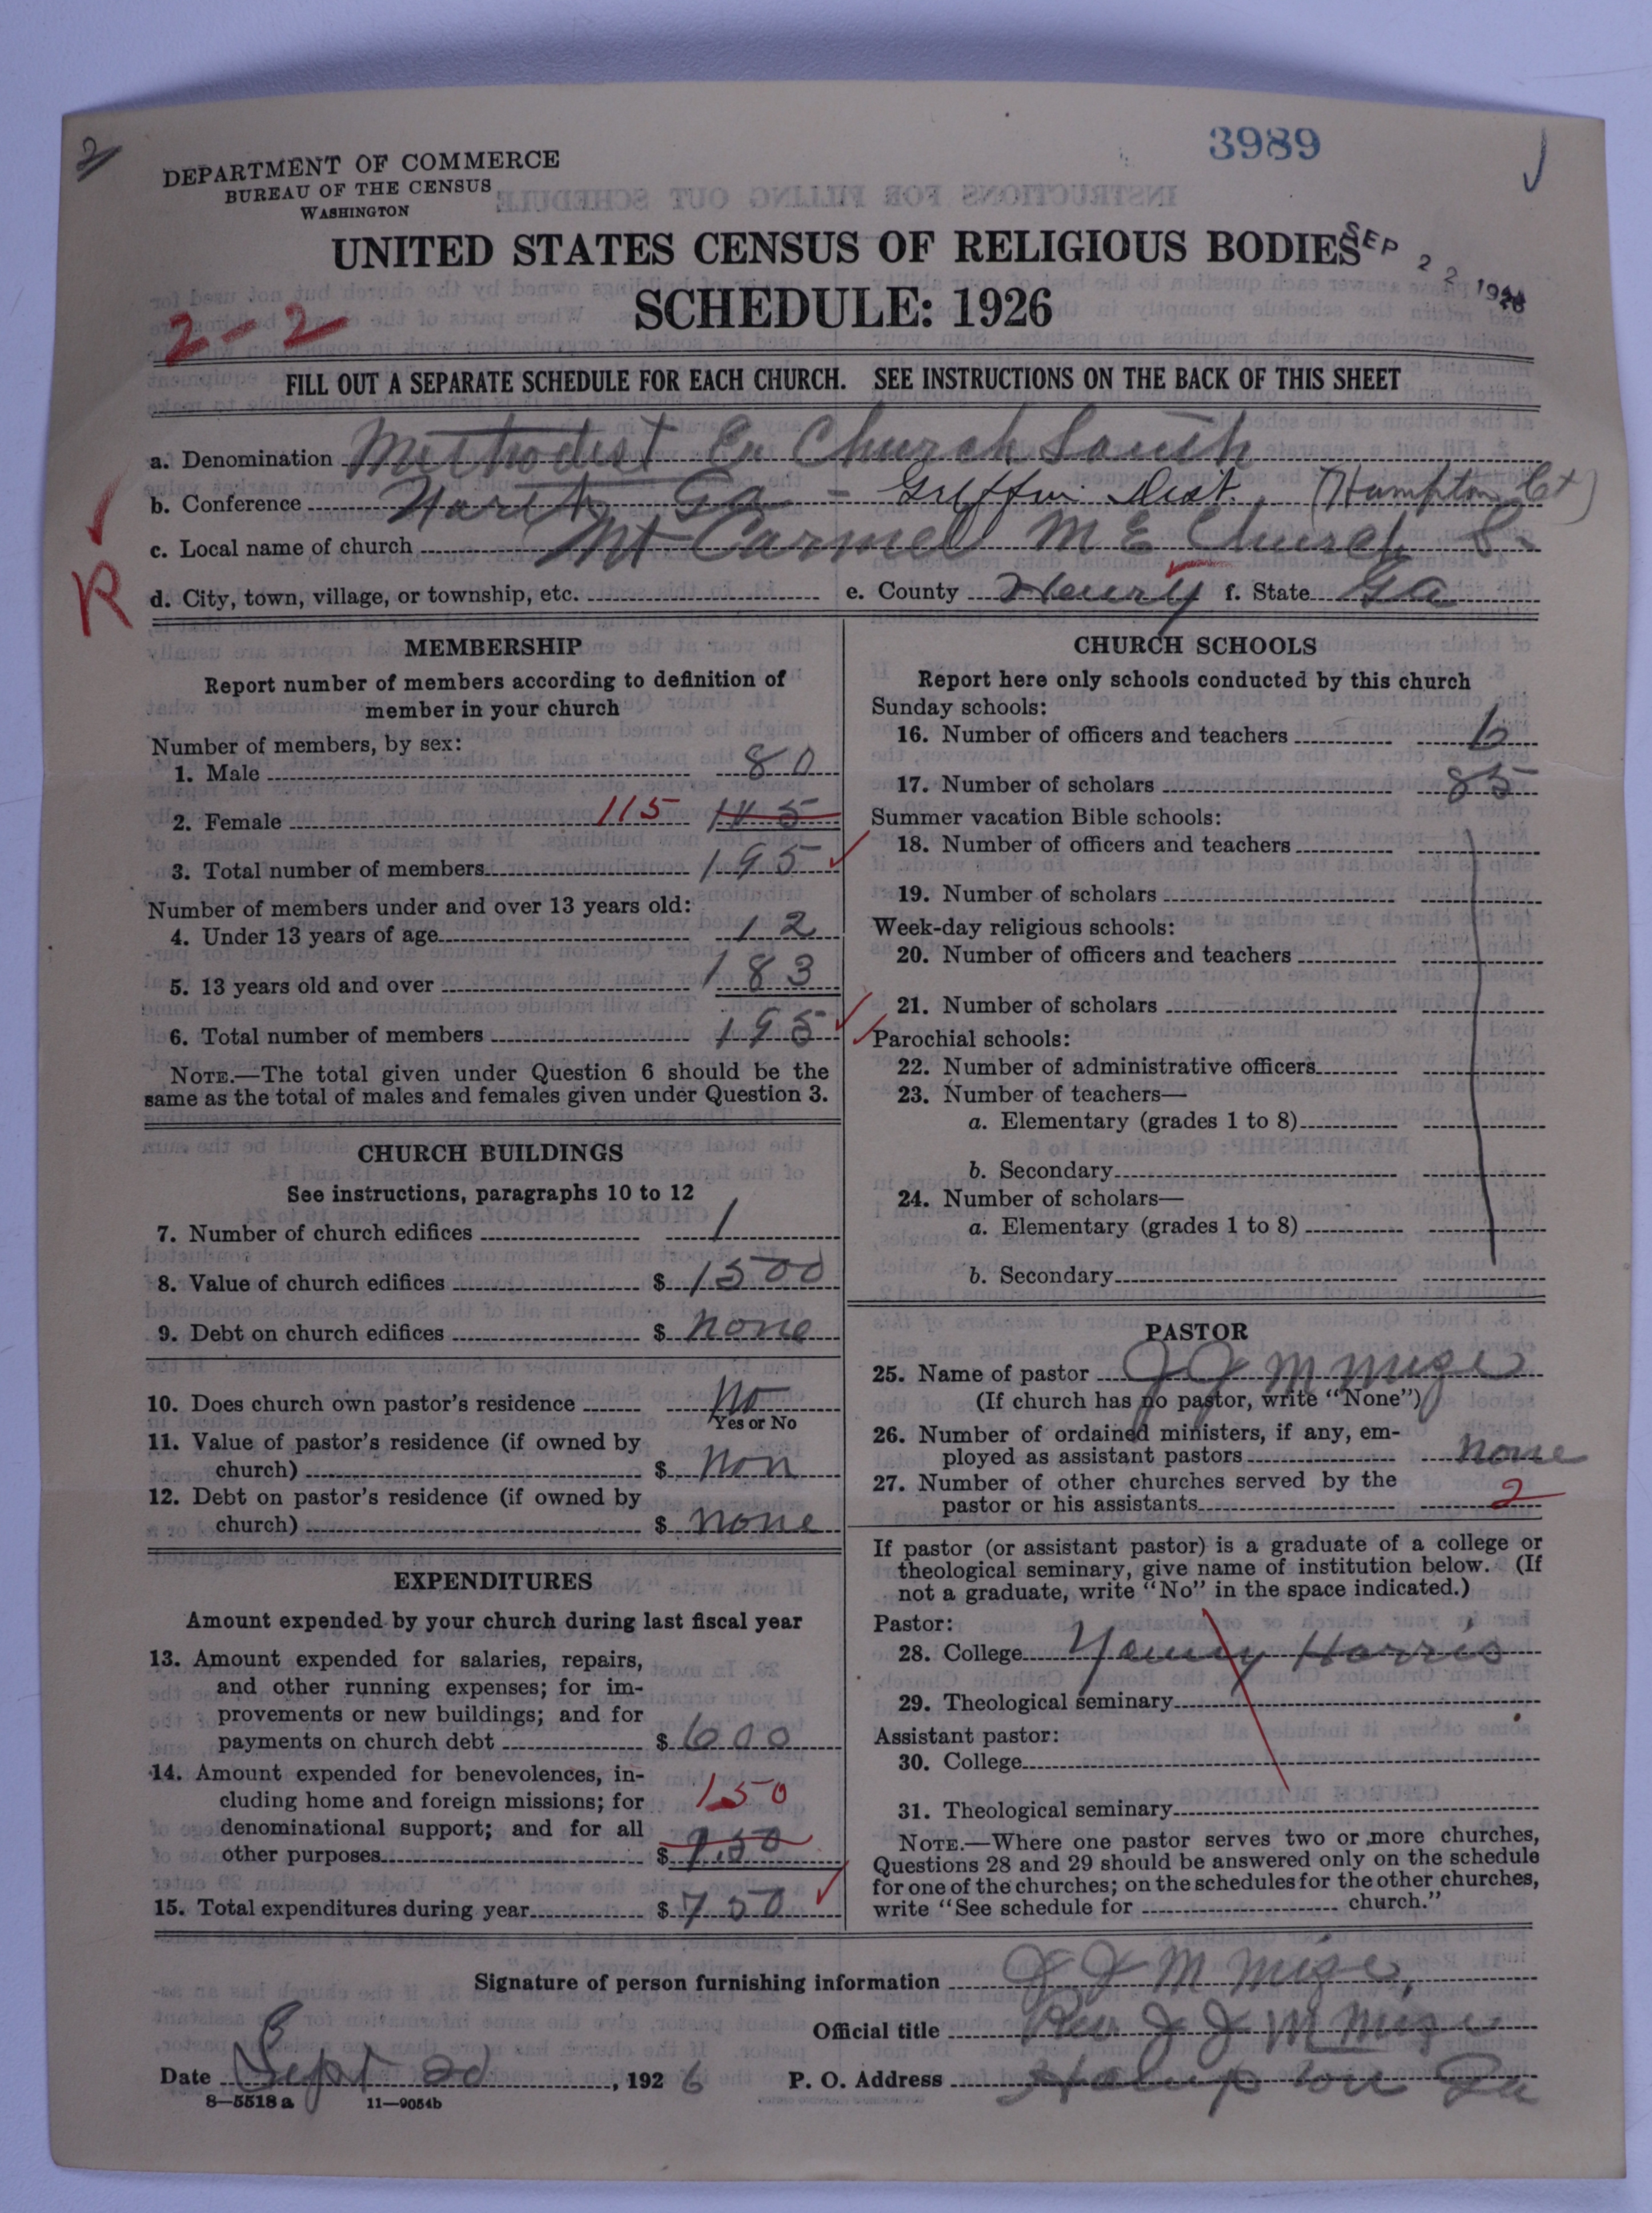 2
3989
DEPARTMENT OF COMMERCE
BUREAU OF THE CENSUS
WASHINGTON
UNITED STATES CENSUS OF RELIGIOUS BODIES
SEP 22 1926
SCHEDULE: 1926
2-2
FILL OUT A SEPARATE SCHEDULE FOR EACH CHURCH. SEE INSTRUCTIONS ON THE BACK OF THIS SHEET
a. Denomination Methodist E. Church South
b. Conference North Ga - Griffin Dist. (Hampton Ct)
c. Local name of church Mt Carmel M E Church S.
R
d. City, town, village, or township, etc. e. County Henry f. State Ga
MEMBERSHIP
Report number of members according to definition of
member in your church
Number of members, by sex:
1. Male 80
2. Female 115 145
3. Total number of members 195
Number of members under and over 13 years old:
4. Under 13 years of age 12
5. 13 years old and over 183
6. Total number of members 195
NOTE.—The total given under Question 6 should be the
same as the total of males and females given under Question 3.
CHURCH BUILDINGS
See instructions, paragraphs 10 to 12
7. Number of church edifices 1
8. Value of church edifices $ 1500
9. Debt on church edifices $ none
10. Does church own pastor's residence No
Yes or No
11. Value of pastor's residence (if owned by
church) $ non
12. Debt on pastor's residence (if owned by
church) $ none
EXPENDITURES
Amount expended by your church during last fiscal year
13. Amount expended for salaries, repairs,
and other running expenses; for im-
provements or new buildings; and for
payments on church debt $ 600
14. Amount expended for benevolences, in-
cluding home and foreign missions; for 150
denominational support; and for all
other purposes $ 750
15. Total expenditures during year $ 750
CHURCH SCHOOLS
Report here only schools conducted by this church
Sunday schools:
16. Number of officers and teachers 6
17. Number of scholars 85
Summer vacation Bible schools:
18. Number of officers and teachers
19. Number of scholars
Week-day religious schools:
20. Number of officers and teachers
21. Number of scholars
Parochial schools:
22. Number of administrative officers
23. Number of teachers—
a. Elementary (grades 1 to 8)
b. Secondary
24. Number of scholars—
a. Elementary (grades 1 to 8)
b. Secondary
PASTOR
25. Name of pastor J J M Mize
(If church has no pastor, write "None")
26. Number of ordained ministers, if any, em-
ployed as assistant pastors none
27. Number of other churches served by the
pastor or his assistants 2
If pastor (or assistant pastor) is a graduate of a college or
theological seminary, give name of institution below. (If
not a graduate, write "No" in the space indicated.)
Pastor:
28. College Young Harris
29. Theological seminary
Assistant pastor:
30. College
31. Theological seminary
NOTE.—Where one pastor serves two or more churches,
Questions 28 and 29 should be answered only on the schedule
for one of the churches; on the schedules for the other churches,
write "See schedule for church."
Signature of person furnishing information J J M Mize
Official title Rev J J M Mize
Date Sept 20, 1926 P. O. Address Hampton Ga
8—5518 a 11—9054b